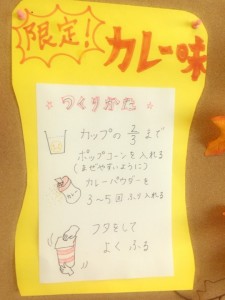 限定!
カレー味
つくりかた
カップの 2/3 まで
ポップコーンを入れる
(まぜやすいように)
カレーパウダーを
3〜5回 ふり入れる
フタをして
よく ふる